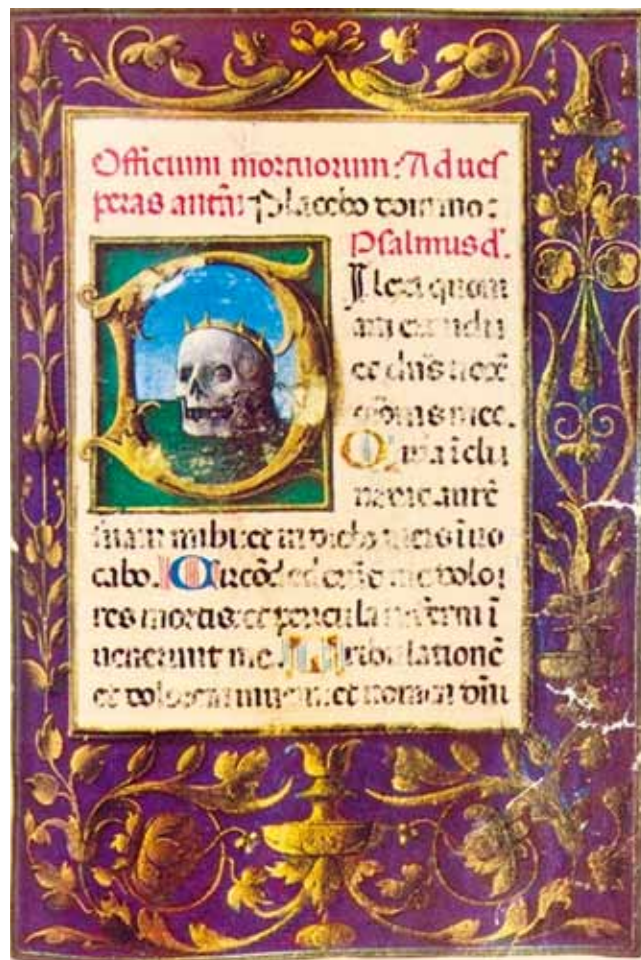 Officium mortuorum: Ad ues
peras antiā: Placebo domino:
Psalmus d.
DIlexi quoni
am exaudi
et dn̄s uocē
or̄onis mee.
Quia īcli
nauit aurē
suam mihi: et in diebus meis īuo
cabo. dederūt me dolo
res mortis: et pericula inferni ī
uenerunt me. Tribulationē
et dolorem inueni: et nomen dn̄i